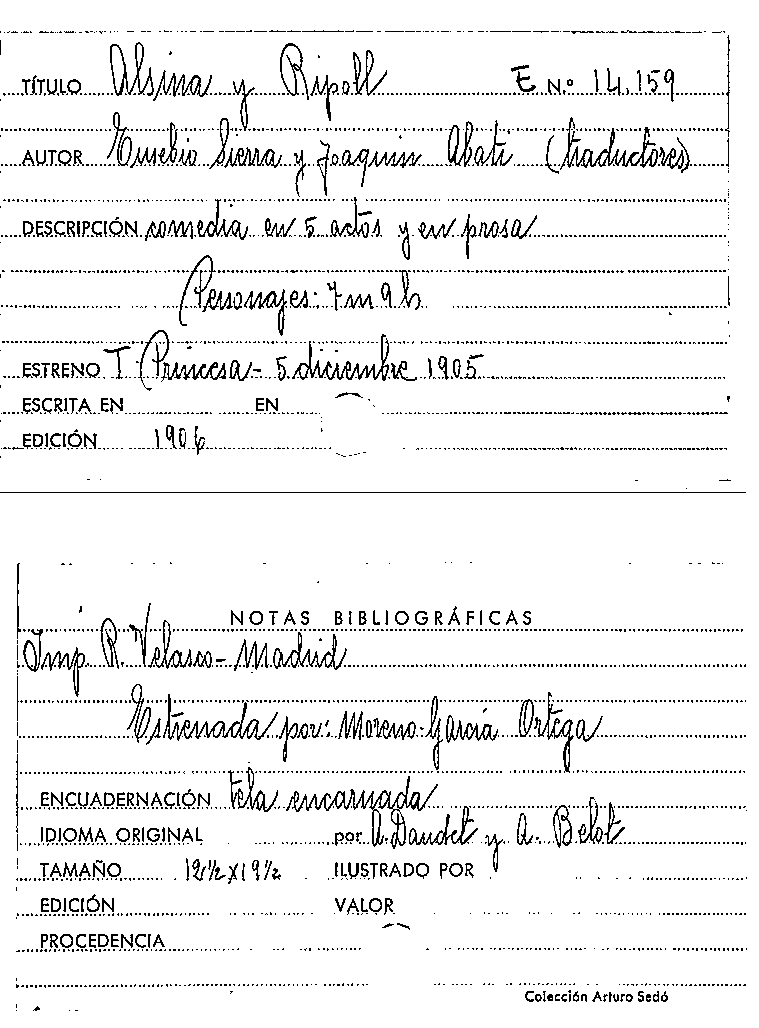 TÍTULO Alsina y Ripoll E N.º 14.159
AUTOR Eusebio Sierra y Joaquin Abati (traductores)
DESCRIPCIÓN comedia en 5 actos y en prosa
Personajes: 7 m 9 h
ESTRENO T. Princesa - 5 diciembre 1905
ESCRITA EN EN
EDICIÓN 1906
NOTAS BIBLIOGRÁFICAS
Imp. R. Velasco - Madrid
Estrenada por: Moreno-Garcia Ortega
ENCUADERNACIÓN tela encarnada
IDIOMA ORIGINAL por A. Daudet y A. Belot
TAMAÑO 12½ x 19½ ILUSTRADO POR
EDICIÓN VALOR
PROCEDENCIA
Colección Arturo Sedó